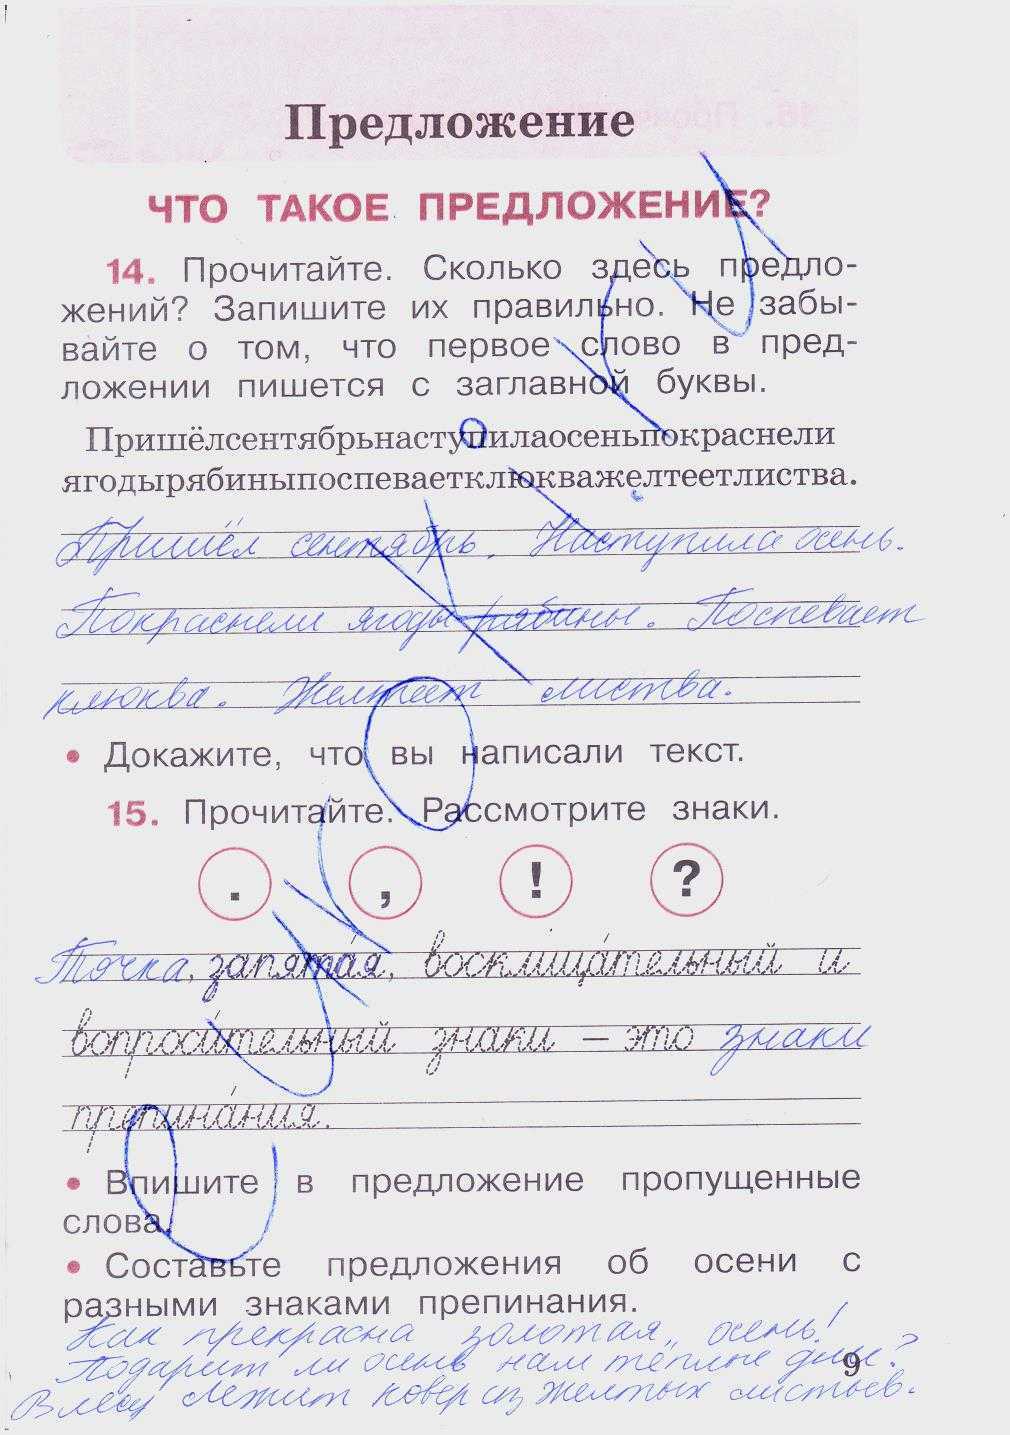 Предложение
ЧТО ТАКОЕ ПРЕДЛОЖЕНИЕ?
14. Прочитайте. Сколько здесь предло-
жений? Запишите их правильно. Не забы-
вайте о том, что первое слово в пред-
ложении пишется с заглавной буквы.
Пришёлсентябрьнаступилаосеньпокраснели
ягодырябиныпоспеваетклюкважелтеетлиства.
Пришёл сентябрь. Наступила осень.
Покраснели ягоды рябины. Поспевает
клюква. Желтеет листва.
• Докажите, что вы написали текст.
15. Прочитайте. Рассмотрите знаки.
. , ! ?
Точка, запята́я, восклица́тельный и
вопроси́тельный знаки — это знаки
препина́ния.
• Впишите в предложение пропущенные
слова.
• Составьте предложения об осени с
разными знаками препинания.
Как прекрасна золотая осень!
Подарит ли осень нам тёплые дни?
9
В лесу лежит ковер из желтых листьев.